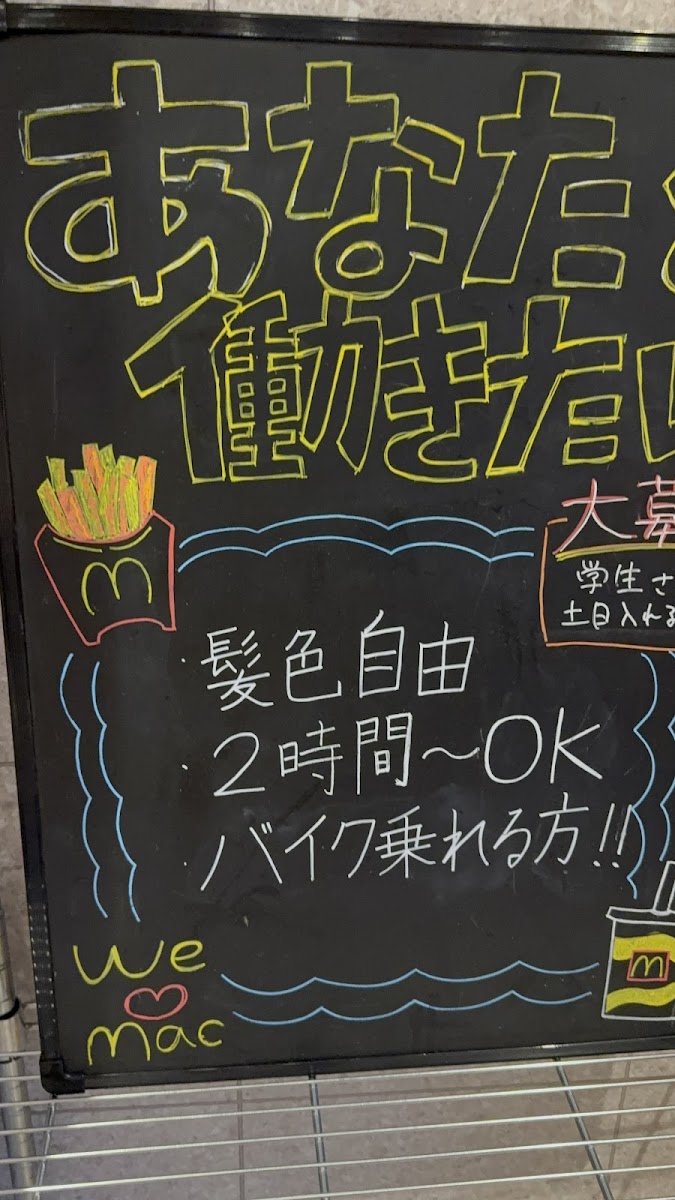 あなた
働きたい
大募
学生さ
土日入れる
m
・髪色自由
・2時間〜OK
・バイク乗れる方!!
We
♡
mac
m